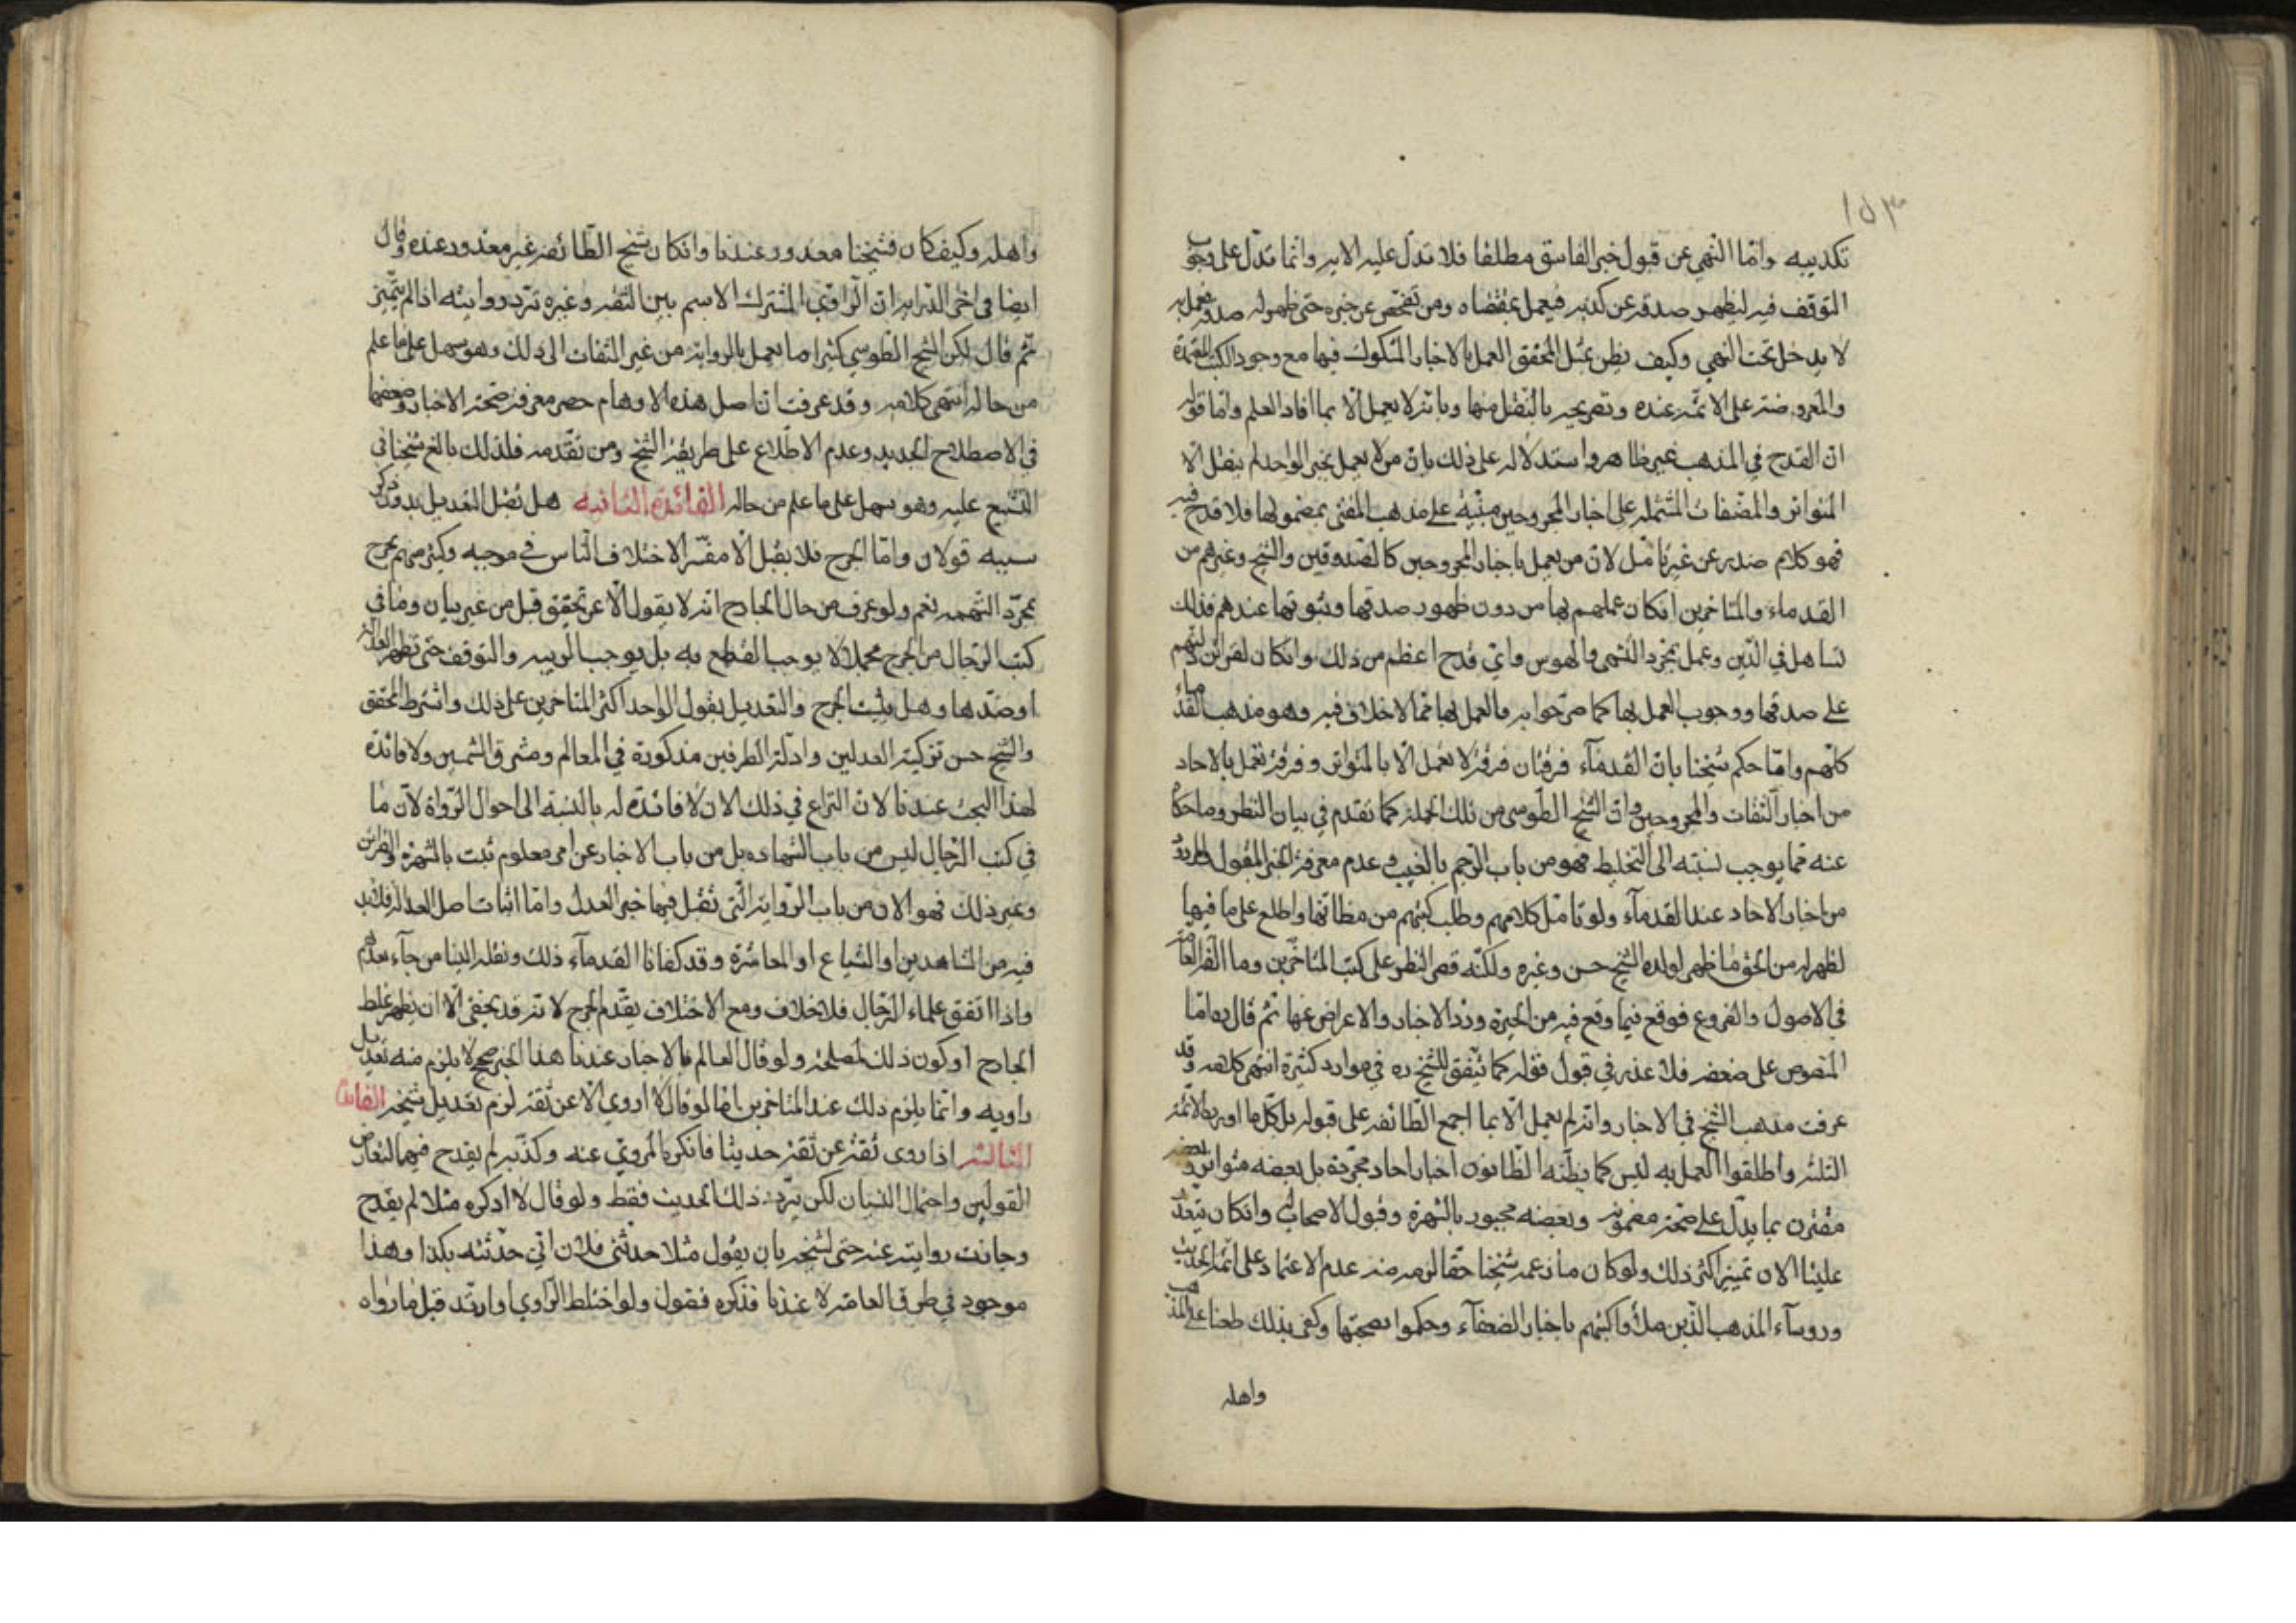 ١٥٣
تكذيبه وامّا النّهي عن قبول خبر الفاسق مطلقا فلا تدلّ عليه الاية وانّما تدلّ على وجوب
التوقف فيه ليظهر صدقه عن كذبه فيعمل بمقتضاه ومن تفحّص عن خبره حتى ظهر له صدقه فعمل به
لا يدخل تحت النهي وكيف يظن بمثل المحقق العمل بالاخبار المشكوك فيها مع وجود الكتب المعتمدة
والمعروضة على الائمّة عنده وتصريحه بالنّقل منها وبانّه لا يعمل الّا بما افاد العلم وامّا قوله
ان القدح في المذهب غير ظاهر واستدلاله على ذلك بان من لا يعمل بخبر الواحد لم ينقل الا
المتواتر والمصّنفات المشتملة على اخبار المجروحين مبنيّة على مذهب المفتي بمضمونها فلا قدح فيه
فهو كلام صدر عن غير تامّل لانّ من يعمل باخبار المجروحين كالصّدوقين والشيخ وغيرهم من
القدماء والمتاخرين ان كان عملهم بها من دون ظهور صدقها وثبوتها عندهم فذلك
تساهل في الدّين وعمل بمجرّد التّشهي والهوس وايّ قدح اعظم من ذلك وان كان لقرائن دلتهم
على صدقها ووجوب العمل بها كما صرّحوا به فالعمل بها ممّا لا خلاف فيه وهو مذهب القدماء
كلّهم وامّا حكم شيخنا بانّ القدمآء فرقتان فرقة لا تعمل الّا بالمتواتر وفرقة تعمل بالاحاد
من اخبار الثقات والمجروحين وانّ الشيخ الطوسى من تلك الجملة كما تقدم في بيان النظر وما حكاه
عنه ممّا يوجب نسبته الى التخليط فهو من باب الرّجم بالغيب وعدم معرفة الخبر المقبول
من اخبار الاحاد عند القدمآء ولو تامّل كلامهم وطلب كتبهم من مظانّها واطلع على ما فيها
لظهر له من الحق ما ظهر لولده الشيخ حسن وغيره ولكنّه قصر النظر على كتب المتاخّرين وما الّفه العامّة
في الاصول والفروع فوقع فيما وقع فيه من الحيرة وردّ الاخبار والاعراض عنها ثم قال ره امّا
المنصوص على ضعفه فلا عذر في قبول قوله كما يتّفق للشيخ ره في موارد كثيرة انتهى كلامه وقد
عرفت مذهب الشيخ في الاخبار وانّه لم يعمل الّا بما اجمع الطّائفة على قبوله بل كلّ ما اورده الائمّة
الثلثة واطلقوا العمل به ليس كما يظنّه الظانون اخبار احاد مجرّدة بل بعضه متواتر وبعضه
مقترن بما يدلّ على صحّة مضمونه وبعضه مجبور بالشهرة وقبول الاصحاب وان كان يتعذّر
علينا الان تمييز اكثر ذلك ولو كان ما زعمه شيخنا حقّا لزمه منه عدم الاعتماد على ائمّة الحديث
وروسآء المذهب الّذين ملأوا كتبهم باخبار الضعفآء وحكموا بصحّتها وكفى بذلك طعنا على المذهب
واهله
واهله وكيف كان فشيخنا معذور عندنا وان كان شيخ الطّائفة غير معذور عنده وقال
ايضا في اخر الدّراية انّ الرّاوي المشترك الاسم بين الثّقة وغيره تردّ روايته اذا لم يتميّز
ثمّ قال لكن الشيخ الطوسي كثيرا ما يعمل بالرواية من غير التفات الى ذلك وهو سهل على ما علم
من حاله انتهى كلامه وقد عرفت انّ اصل هذه الاوهام حصر معرفة صحّة الاخبار وضعفها
في الاصطلاح الجديد وعدم الاطّلاع على طريقة الشيخ ومن تقدّمه فلذلك بالغ شيخنا في
التشنيع عليه وهو سهل على ما علم من حاله الفائدة الثانية هل تقبل التعديل بدون ذكر
سببه قولان وامّا الجرح فلا يقبل الّا مفسّرا لاختلاف النّاس في موجبه وكثير منهم يجرح
بمجرّد التّهمة نعم ولو عرف من حال الجارح انّه لا يقول الّا عن تحقيق قبل من غير بيان وما في
كتب الرّجال من الجرح مجملا لا يوجب القطع به بل يوجب الريبة والتوقف حتى تظهر العدالة
او ضدّها وهل يثبت الجرح والتعديل بقول الواحد اكثر المتاخرين على ذلك واشترط المحقق
والشيخ حسن تزكية العدلين وادلّة الطرفين مذكورة في المعالم ومشرق الشمسين ولا فائدة
لهذا البحث عندنا لان النزاع في ذلك الان لا فائدة له بالنسبة الى احوال الرّواة لانّ ما
في كتب الرّجال ليس من باب الشهادة بل من باب الاخبار عن امر معلوم ثبت بالشهرة والقرائن
وغير ذلك فهو الان من باب الرّواية الّتي تقبل فيها خبر العدل وامّا اثبات اصل العدالة فلا بد
فيه من الشاهدين او الشياع او المعاشرة وقد كفانا القدمآء ذلك ونقله الينا من جآء بعدهم
واذا اتفق علماء الرّجال فلا خلاف ومع الاختلاف يقدّم الجرح لانّه قد يخفى الّا ان يظهر غلط
الجارح او كون ذلك لمصلحة ولو قال العالم بالاخبار عندنا هذا الخبر صحيح لا يلزم منه تعديل
راويه وانّما يلزم ذلك عند المتاخرين امّا لو قال لا اروي الّا عن ثقة لزم تعديل شيخه الفائدة
الثالثة اذا روى ثقة عن ثقة حديثا فانكره المروي عنه وكذّبه لم يقدح فيهما لتعارض
القولين واحتمال النسيان لكن يردّ ذلك الحديث فقط ولو قال لا اذكره مثلا لم يقدح
وجازت روايته عنه حتى لشيخه بان يقول مثلا حدثني فلان اني حدّثته بكذا وهذا
موجود في طرق العامّة لا عندنا فنذكره فنقول ولو اختلط الرّاوي او ارتد قبل ما رواه